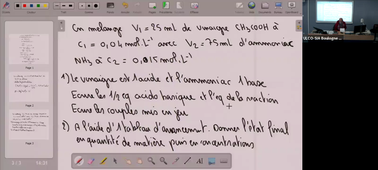 On mélange V1 = 25 mL de vinaigre CH3COOH à
C1 = 0,04 mol.L-1 avec V2 = 75 mL d'ammoniac
NH3 à C2 = 0,015 mol.L-1
1) Le vinaigre est 1 acide et l'ammoniac 1 base
Ecrire les 1/2 eq acido basique et l'eq de la réaction
Ecrire les couples mis en jeu
2) A l'aide d'1 tableau d'avancement. Donner l'état final
en quantité de matière puis en concentrations